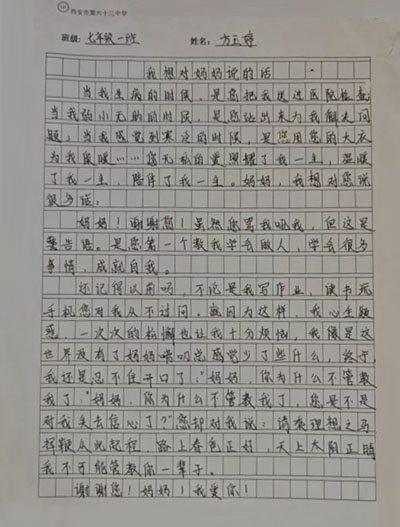 西安市第六十三中学
班级: 七年级一班 姓名: 方玉婷
我想对妈妈说的话
当我生病的时候,是您把我送进医院检查
当我弱小无助的时候,是您站出来为我解决问
题;当我感觉到寒冷的时候,是您用您的大衣
为我保暖……您无私的爱照耀了我一生,温暖
了我一生,陪伴了我一生。妈妈,我想对您说
很多话:
妈妈!谢谢您!虽然您骂我吼我,但这是
警告语。是您第一个教我学会做人,学会很多
事情,成就自我。
还记得以前吗,不论是我写作业,读书玩
手机您对我从不过问。就因为这样,我心生疑
惑,一次次的松懈也让我十分烦恼,我像是这
世界没有了妈妈唠叨总感觉少了些什么,终于
我还是忍不住开口了:"妈妈,你为什么不管教
我了,"妈妈,你为什么不管教我了,您是不是
对我失去信心了?"您却对我说:请乘理想之马
挥鞭从此起程,路上春色正好,天上太阳正晴
我不可能管教你一辈子。
谢谢您!妈妈!我爱你!